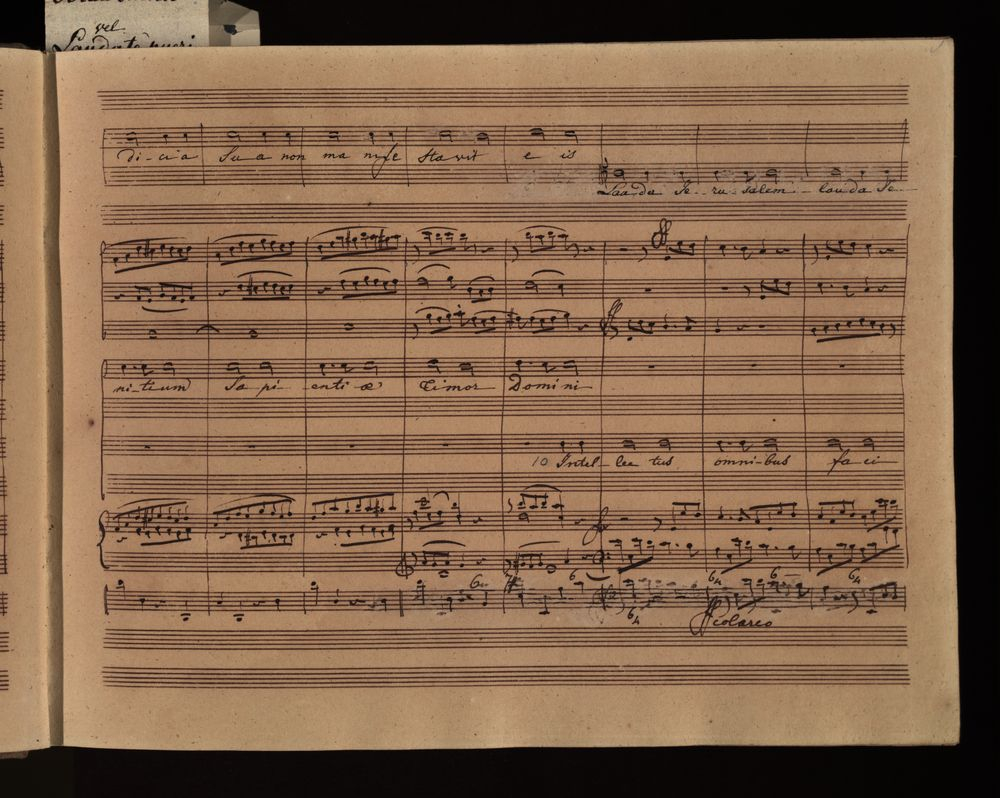 vel
Laudate pueri
di-ci-a Su-a non ma nife stavit e is
Lauda Je-ru-salem lauda Je-
ni-tium Sa pi-enti-æ Timor Domini
10 Intel-lec tus omni-bus fa ci
6 6 6 6
4 4 4
colarco